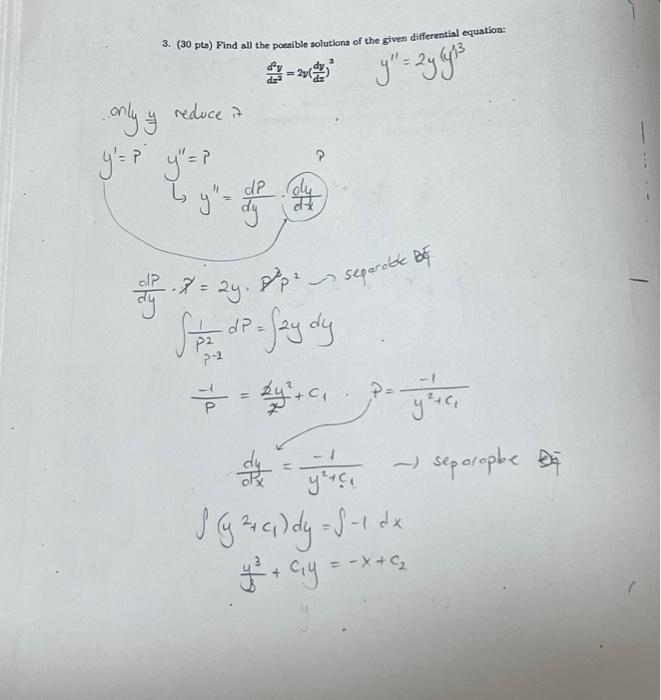 3. (30 pts) Find all the possible solutions of the given differential equation:
d²y/dx² = 2y(dy/dx)³ y'' = 2y(y')³
only y reduce it
y' = P y'' = P
P
↳ y'' = dP/dy · dy/dx
dP/dy · P = 2y · P³ P² → separable DE
∫ 1/P² dP = ∫ 2y dy
P⁻²
-1/P = 2y²/2 + C₁ . P = -1/(y² + C₁)
dy/dx = -1/(y² + C₁) → separapbe DE
∫ (y² + C₁) dy = ∫ -1 dx
y³/3 + C₁y = -x + C₂
y